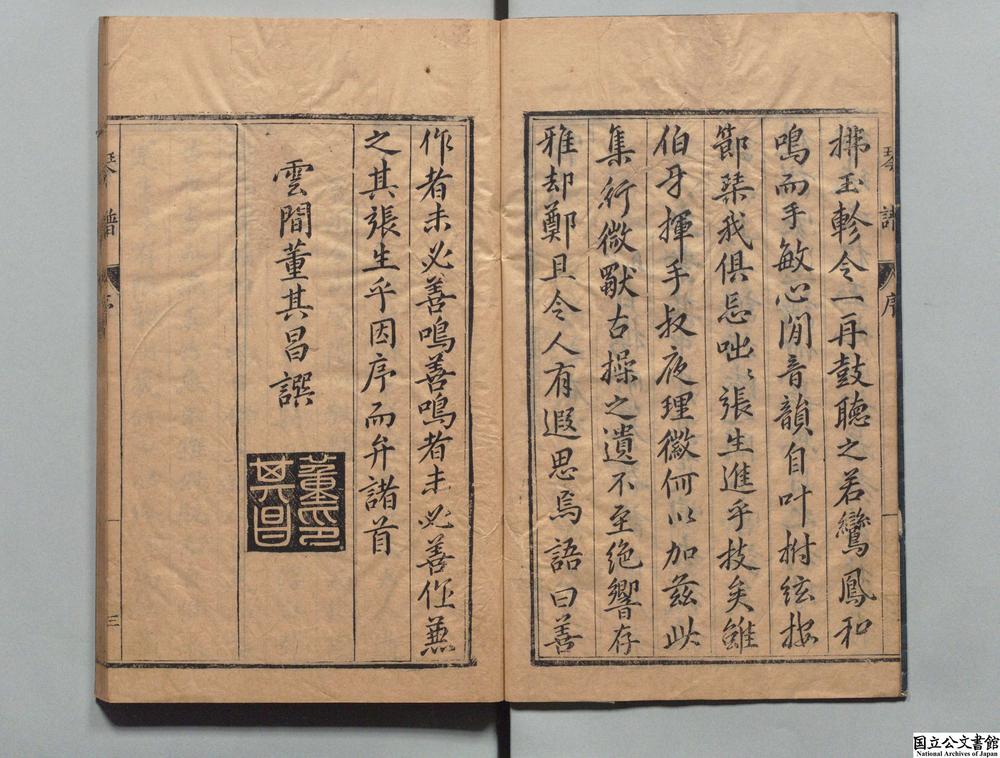 拂玉軫令一再鼓聽之若鸞鳳和
鳴而手敏心閒音韻自叶拊絃按
節琹我俱忘咄〻張生進乎技矣雖
伯牙揮手叔夜理徽何以加茲此
集行微獸古操之遺不至絶響存
雅却鄭且令人有遐思焉語曰善
琴譜 序
作者未必善鳴善鳴者未必善作兼
之其張生乎因序而弁諸首
雲間董其昌譔
董其昌印
琴譜 序 三
国立公文書館
National Archives of Japan